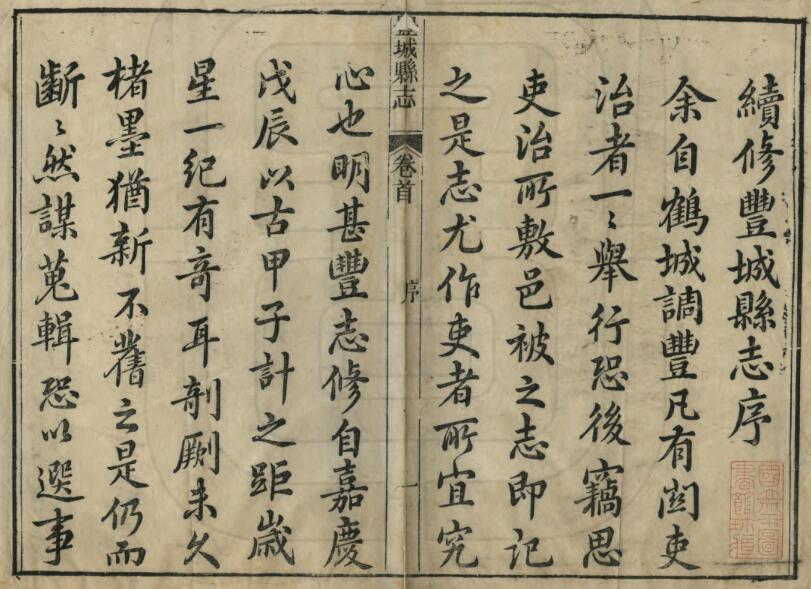 續修豐城縣志序
余自鶴城調豐凡有關吏
治者一〻舉行恐後竊思
吏治所敷邑被之志即記
之是志尤作吏者所宜究
豐城縣志
卷首
序
一
心也明甚豐志修自嘉慶
戊辰以古甲子計之距歲
星一紀有奇耳剞劂未久
楮墨猶新不舊之是仍而
齗〻然謀蒐輯恐以選事